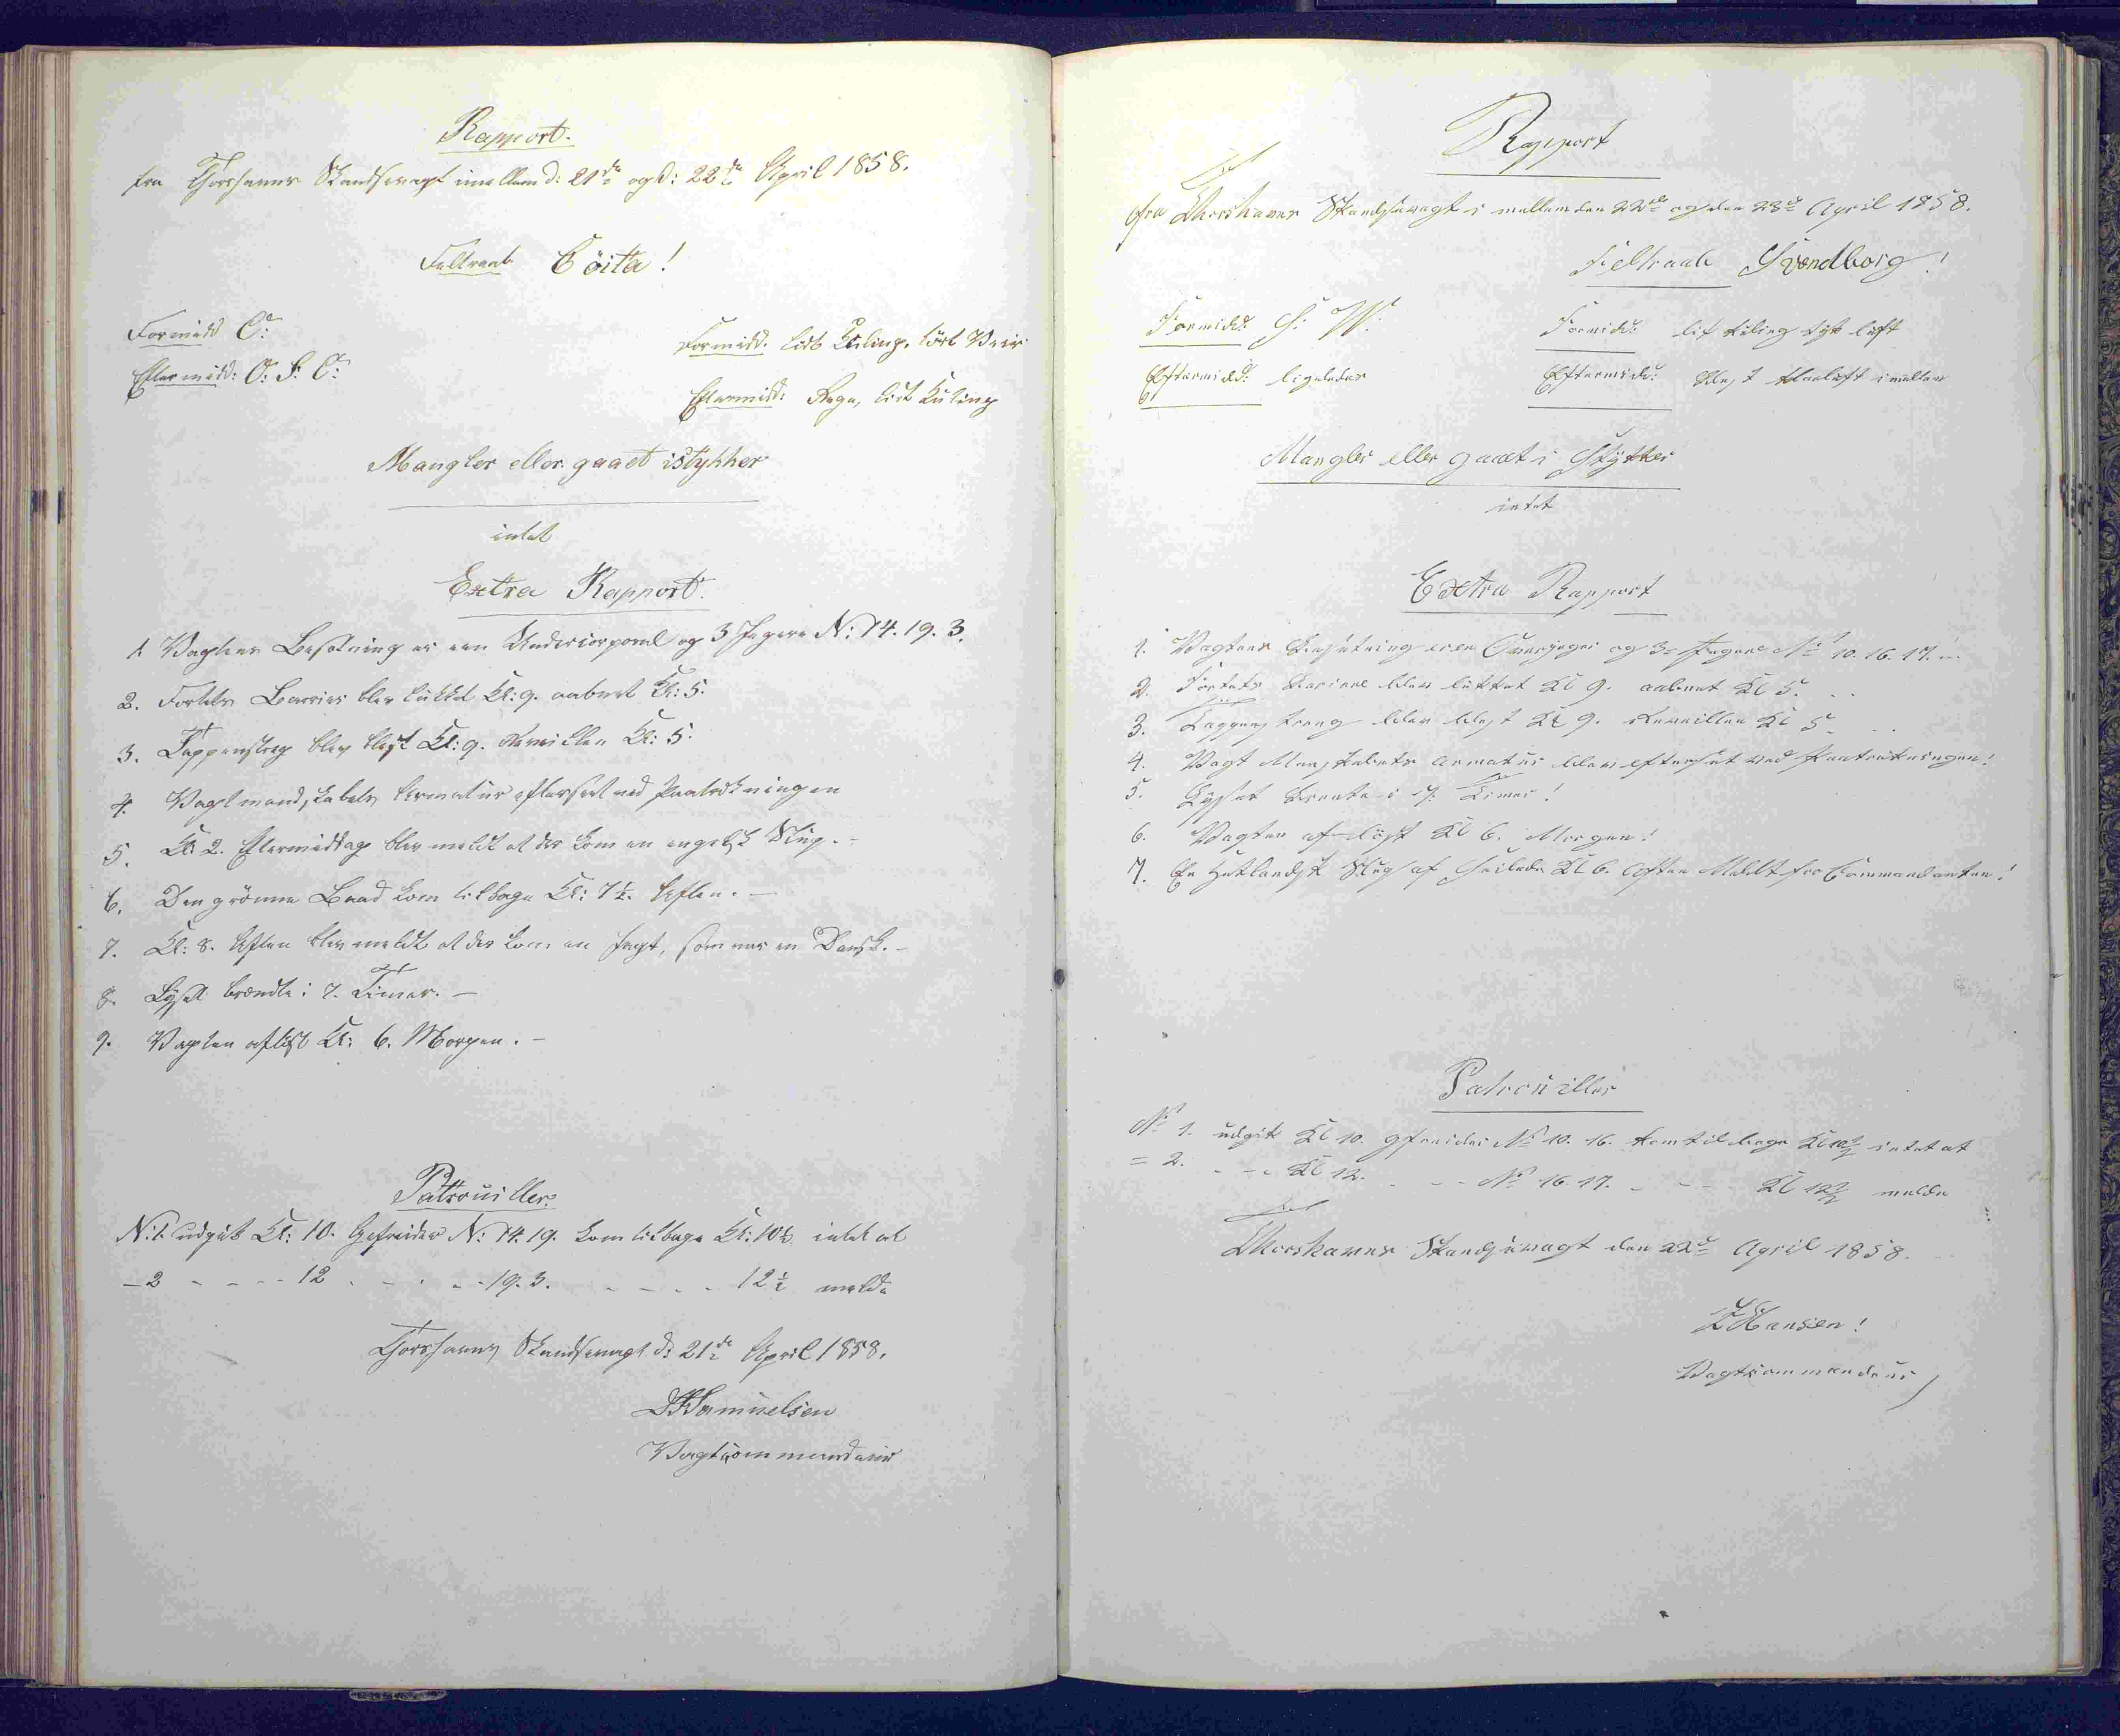 Rapport.
fra Thorshavns Skandsevagt imellem d: 21de og d: 22de April 1858.
Feltraab Cöita!
Formidd O:
Eftermidd: O. S. O:
Formidd. lidt Kuling, tört Veir
Eftermidd: Regn, lidt Kuling
Mangler eller gaaet istykker
intet
Extra Rapport.
1. Vagtens Besætning er een Undercorporal og 3 Jægere N: 14. 19. 3.
2. Fortets Barrier blev lukket Kl: 9. aabnet Kl: 5.
3. Tappenstreg blev blæst Kl: 9. Reveillen Kl: 5.
4. Vagtmandskabets Armatur efterseet ved Paatrækningen
5. Kl 2. Eftermiddag blev meldt at der kom en engelsk Slup. -
6. Den grönne Baad kom tilbage Kl: 7½. Aften. -
7. Kl: 8. Aften blev meldt at der kom en Jagt, som var en Dansk. -
8. Lyset brændte i 7. Timer. -
9. Vagten aflöst Kl: 6. Morgen. -
Patrouiller.
N: 1. udgik Kl: 10. Gefreider N: 14. 19. kom tilbage Kl: 10½ intet at
- 2 - - - - 12 - - - - 19. 3. - - - - 12½ melde
Thorshavns Skandsevagt d: 21de April 1858.
Samuelsen
Vagtcommandeur
Rapport
fra Thorshavns Skandsevagt i mellem den 22de og den 23de April 1858.
Feltraab Svendborg!
Formidd: S: W:
Formidd: lit kuling tyk luft
Eftermidd: ligeledes
Eftermidd: Klarluft imellem
Mangler eller gaaet i Stykker
intet
Extra Rapport
1. Vagtens Besætning er en Overjeger og 3de Jegere No 10. 16. 17.
2. Fortets Bariere blev lukket Kl 9. aabnet Kl 5.
3. Tappenstreng blev blæst Kl 9. Reveillen Kl 5.
4. Vagt Manskabets Armatur blev efterset ved Paatrækningen!
5. Lyset brente i 7. Timer!
6. Vagten aflöst Kl 6. Morgen!
7. En Hetlandsk Slup af Seilede Kl 6. Aften Meldt for Commandanten!
Patrouiller
No 1. udgik Kl 10. gfreider No 10. 16. kom tilbage Kl 10½ intet at
= 2. - - - Kl 12. - - - No 16 17. - - - - Kl 12½ melde
Thorshavns Skandsevagt den 22de April 1858.
Hansen!
Vagtkommandeur